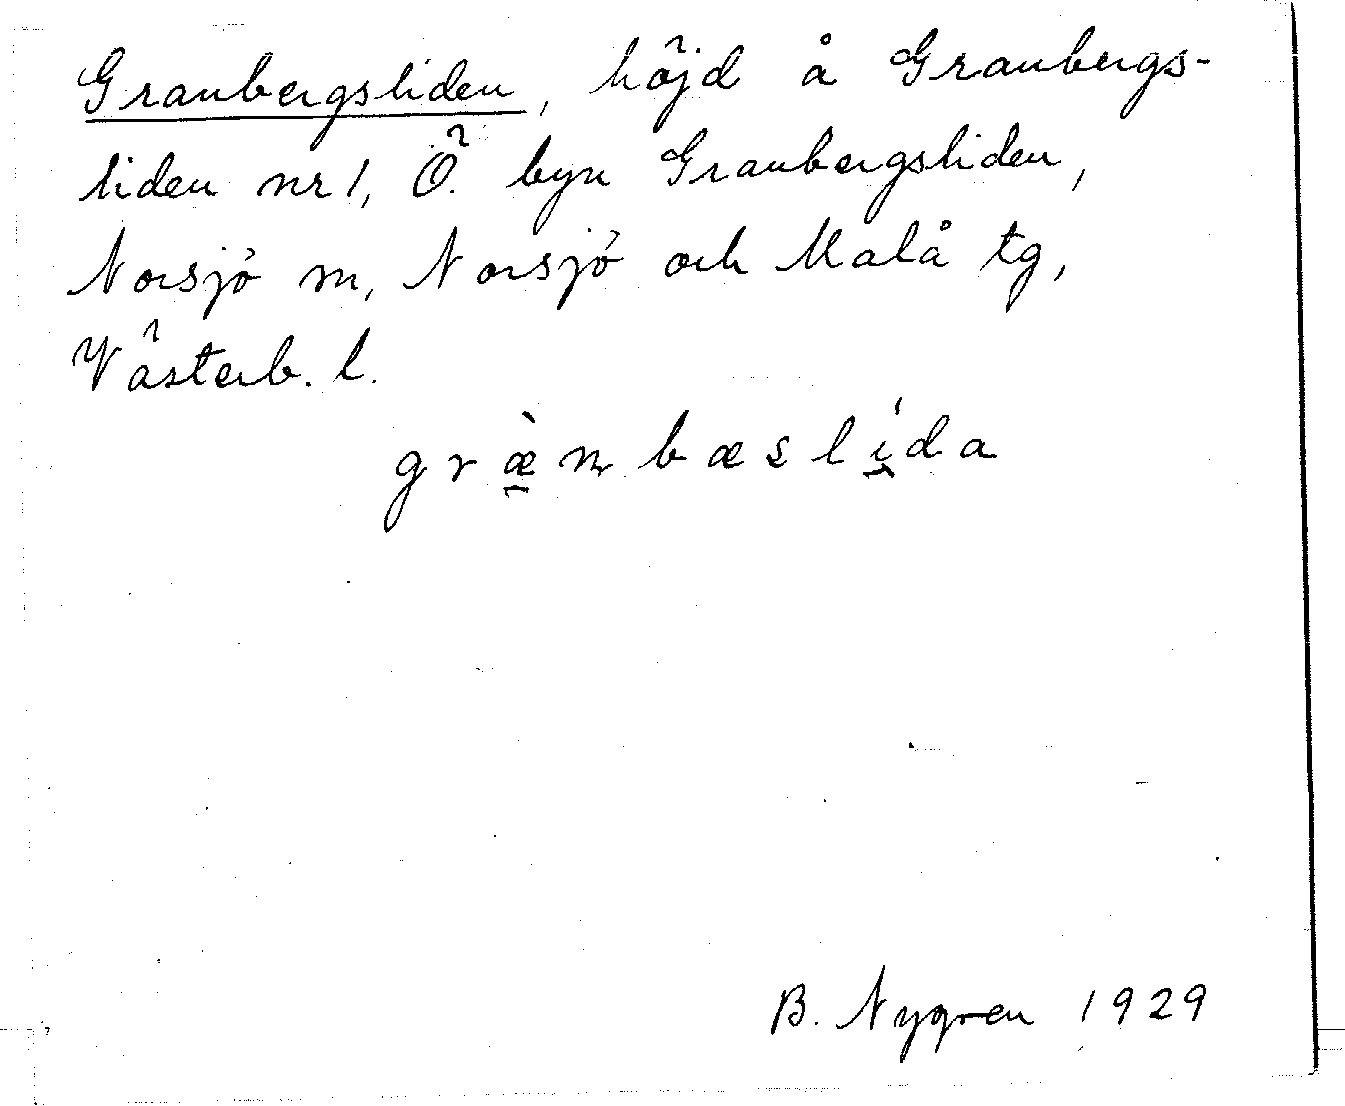 Granbergsliden, höjd å Granbergs-
liden nr 1, Ö. byn Granbergsliden,
Norsjö sn, Norsjö och Malå tg,
Västerb. l.
græ̀nbæslída
B. Nygren 1929